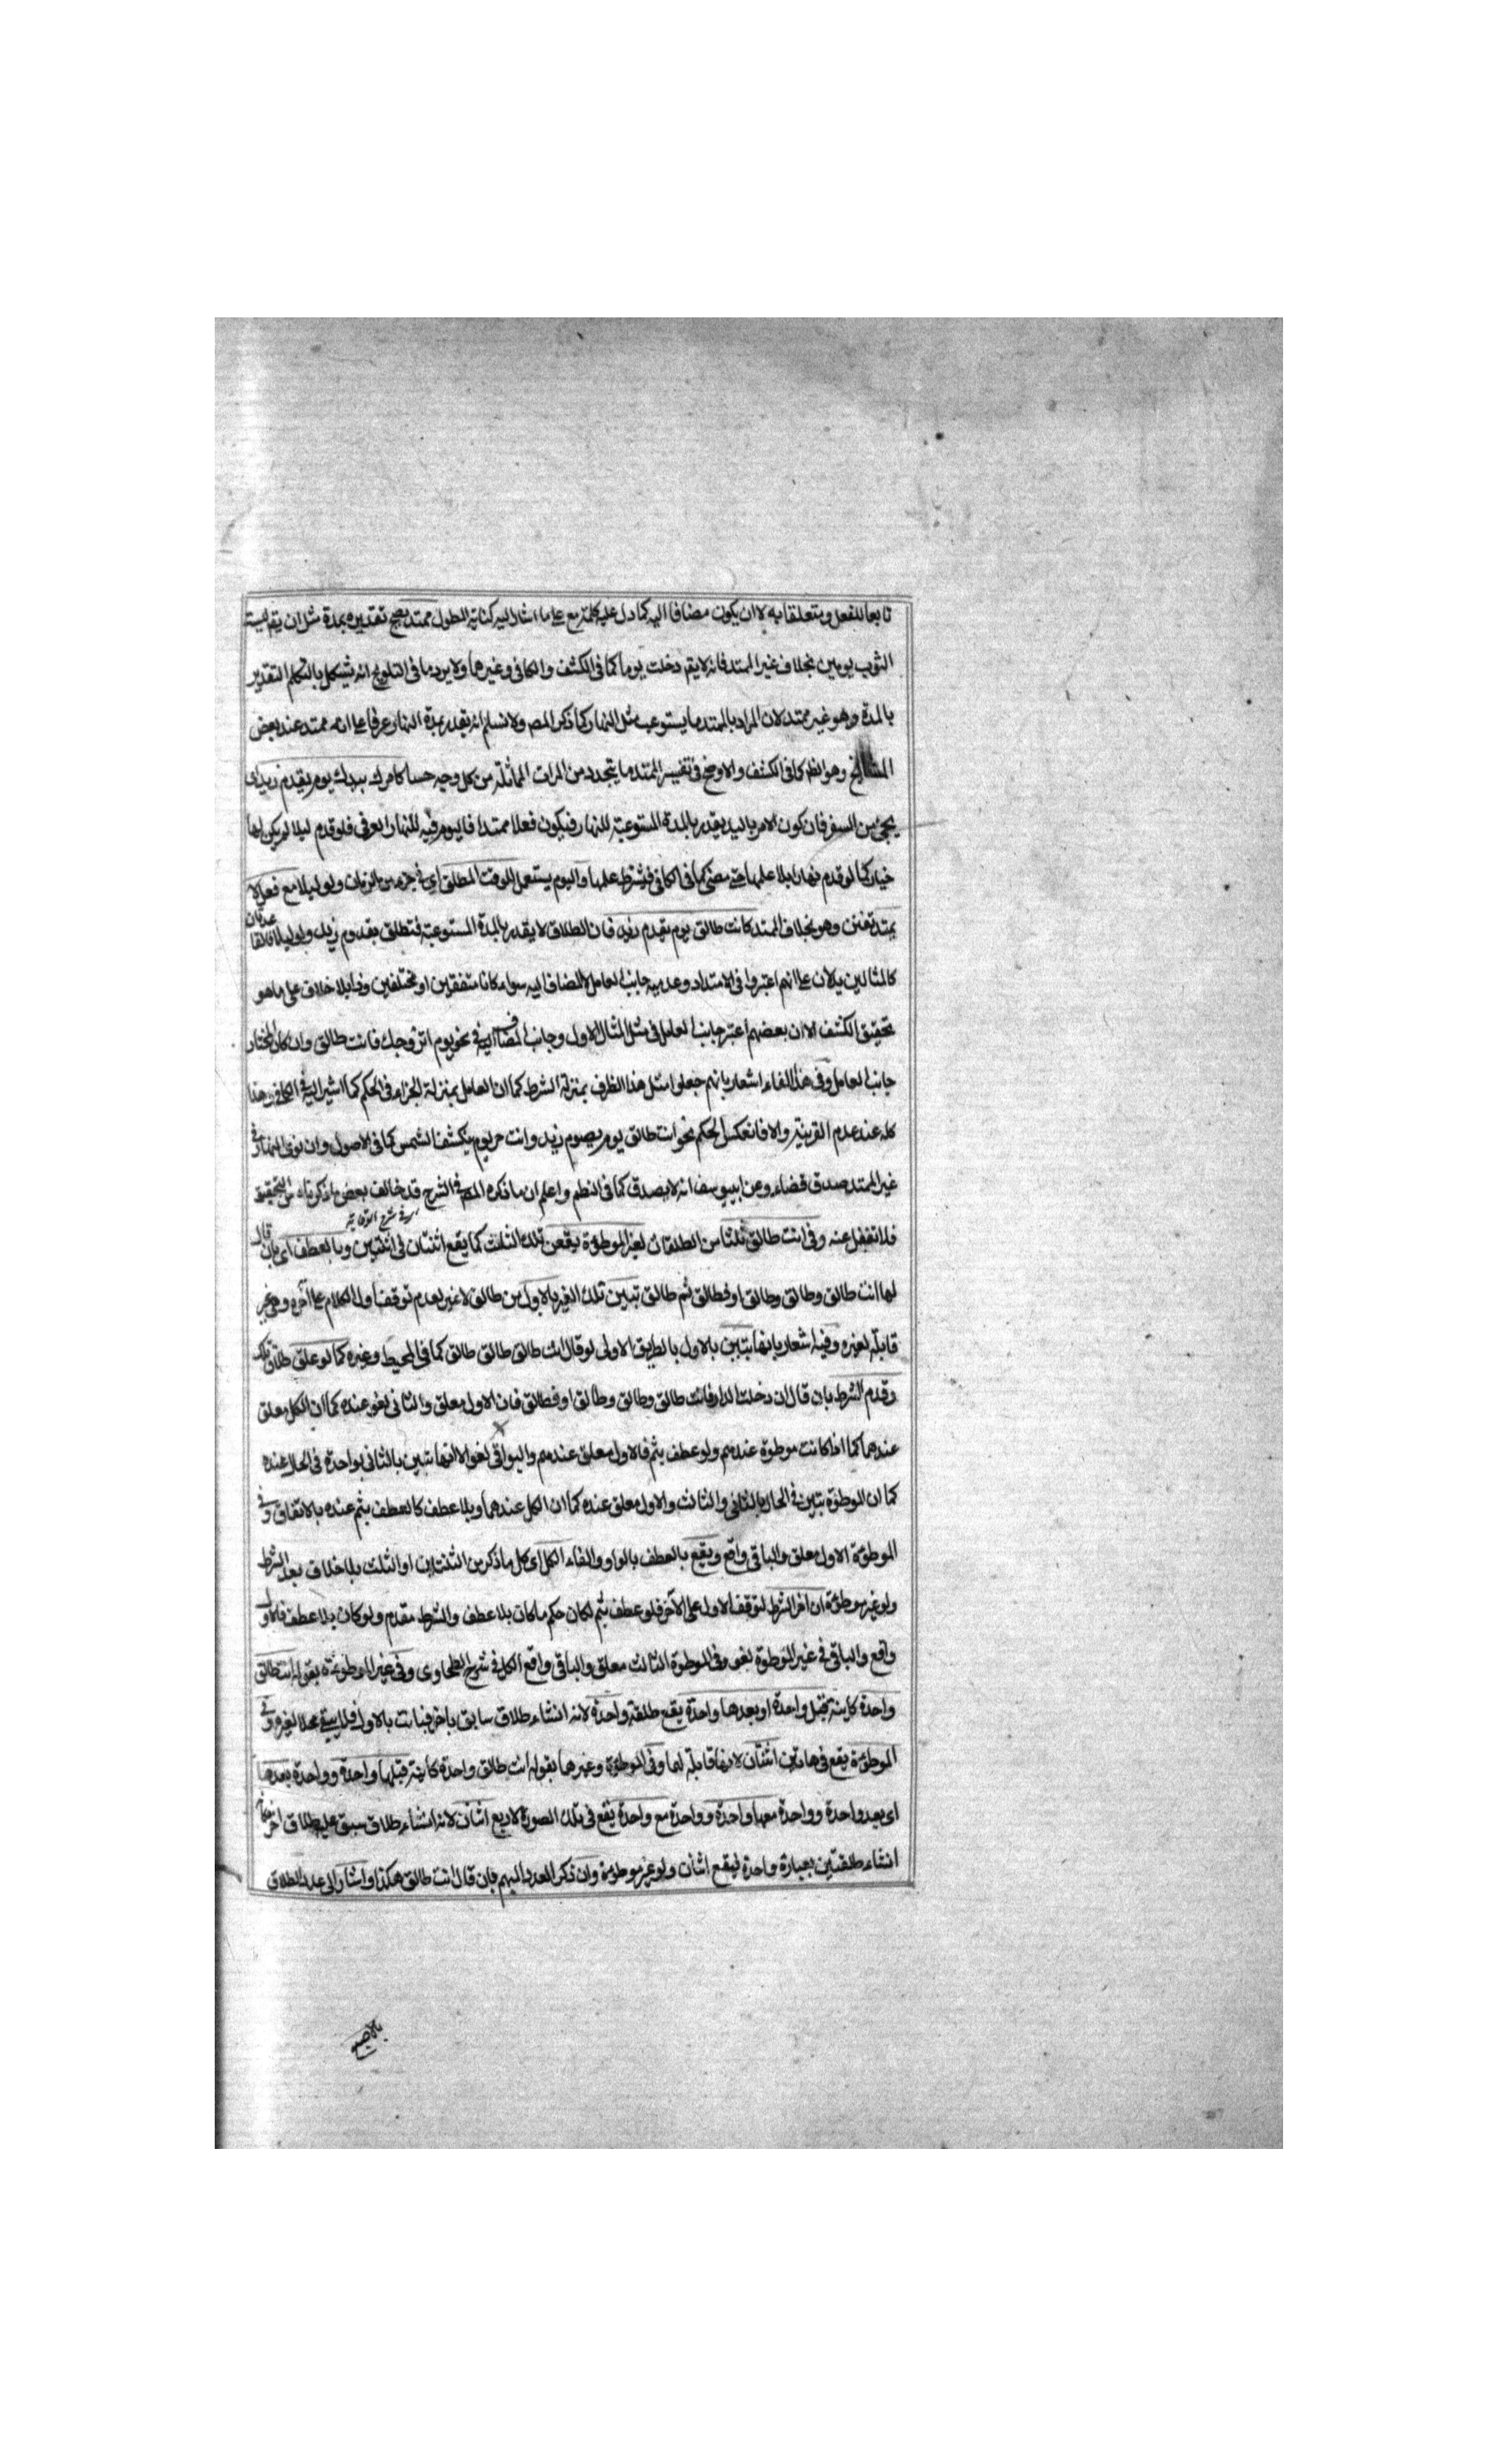 تابعا للفعل ومتعلقا به لا ان يكون مضافا اليه كما دل عليه كلمة مع على ما اشار اليه كناية المطول ممتد يصح تقديره بمدة مثل ان يقال لبست
الثوب يومين بخلاف غير الممتد فانه لا يقال دخلت يوما كما فى الكشف والكافى وغيرهما ولا يرد ما فى التلويح انه يشكل بالتكلم لتقدير
بالمدة وهو غير ممتد لان المراد بالممتد ما يستوعب مثل النهار كما ذكر المص ولا نسلم انه يقدر بمدة النهار عرفا على انه ممتد عند بعض
المشايخ وهو الظ كما فى الكشف والاوضح فى تفسير الممتد ما يتجدد من المرات المماثلة من كل وجه حسا كامرك بيدك يوم يقدم زيد اى
يجئ من السفر فان كون الامر باليد يقدر بالمدة المستوعبة للنهار فيكون فعلا ممتدا فاليوم فيه للنهار العرفى فلو قدم ليلا لم يكن لها
خيار كما لو قدم نهارا بلا علمها حتى مضى كما فى الكافى فيشترط علمها واليوم يستعمل للوقت المطلق اى فى جزء من الزمان ولو ليلا مع فعل لا
يمتد تعنن وهو بخلاف الممتد كانت طالق يوم يقدم زيد فان الطلاق لا يقدر بالمدة المستوعبة فتطلق بقدوم زيد ولو ليلا
كالمثالين يدلان على انهم اعتبروا فى الامتداد وعدمه جانب العامل لا المضاف اليه سواء كانا متفقين او مختلفين وذا بلا خلاف على ما هو
تحقيق الكشف الا ان بعضهم اعتبر جانب العامل فى مثل المثال الاول وجانب المضاف اليه فى نحو يوم اتزوجك فانت طالق وان كان المختار
جانب العامل وفى هذا الفاء اشعار بانهم جعلوا مثل هذا الظرف بمنزلة الشرط كما ان العامل بمنزلة الجزاء فى الحكم كما اشير اليه فى الكافى وهذا
كله عند عدم القرينة والا فانعكس الحكم نحو انت طالق يوم يصوم زيد وانت حر يوم ينكسف الشمس كما فى الاصول وان نوى النهار فى
غير الممتد صدق قضاء وعن ابى يوسف انه لا يصدق كما فى النظم واعلم ان ما ذكره المص فى الشرح قد خالف بعض ما ذكرناه من التحقيق
اى فى شرح الوقاية
فلا تغفل عنه وفى انت طالق ثلثا من الطلقات لغير الموطوءة يقعن تلك الثلث كما يقع اثنتان فى اثنتين وبالعطف اى بان قال
لها انت طالق وطالق وطالق او فطالق ثم طالق تبين تلك الغير بالاول من طالق لا غير لعدم توقف اول الكلام على آخره وهى غير
قابلة لغيره وفيه اشعار بانها تبين بالاول بالطريق الاولى لو قال انت طالق طالق طالق كما فى المحيط وغيره كما لو علق طلاق تلك
وقدم الشرط بان قال ان دخلت الدار فانت طالق وطالق وطالق او فطالق فان الاول معلق والثانى لغو عنده كما ان الكل معلق
عندهما كما اذا كانت موطوة عندهم ولو عطف بثم فالاول معلق عندهم والبواقى لغو الا انها تبين بالثانى بواحدة فى الحال عنده
كما ان الموطوة تبين فى الحال بالثانى والثالث والاول معلق عنده كما ان الكل عندهما وبلا عطف كالعطف بثم عنده بالاتفاق وفى
الموطوءة الاول معلق والباقى واقع ويقع بالعطف بالواو والفاء الكل اى كل ما ذكر من الثنتين او الثلث بلا خلاف بعد الشرط
ولو غير موطوءة ان اخر الشرط لتوقف الاول على الآخر فلو عطف بثم لكان حكم ما كان بلا عطف والشرط مقدم ولو كان بلا عطف فالاول
واقع والباقى فى غير الموطوة لغو وفى الموطوة الثالث معلق والباقى واقع الكل فى شرح الطحاوى وفى غير الموطوءة بقوله انت طالق
واحدة كاينة قبل واحدة او بعدها واحدة يقع طلقة واحدة لانه انشاء طلاق سابق باخر فبانت بالاول فلم يبق محلا لغيره وفى
الموطوءة يقع فى هاتين اثنتان لانها قابلة لها وفى الموطوءة وغيرها بقوله انت طالق واحدة كاينة قبلها واحدة وواحدة بعدها
اى بعد واحدة وواحدة معها واحدة وواحدة مع واحدة يقع فى تلك الصورة الاربع اثنان لانه انشاء طلاق سبق عليه طلاق اخر
انشاء طلقتين بعبارة واحدة فيقع اثنان ولو غير موطوءة وان ذكر العدد المبهم بان قال انت طالق هكذا واشار الى عدد الطلاق